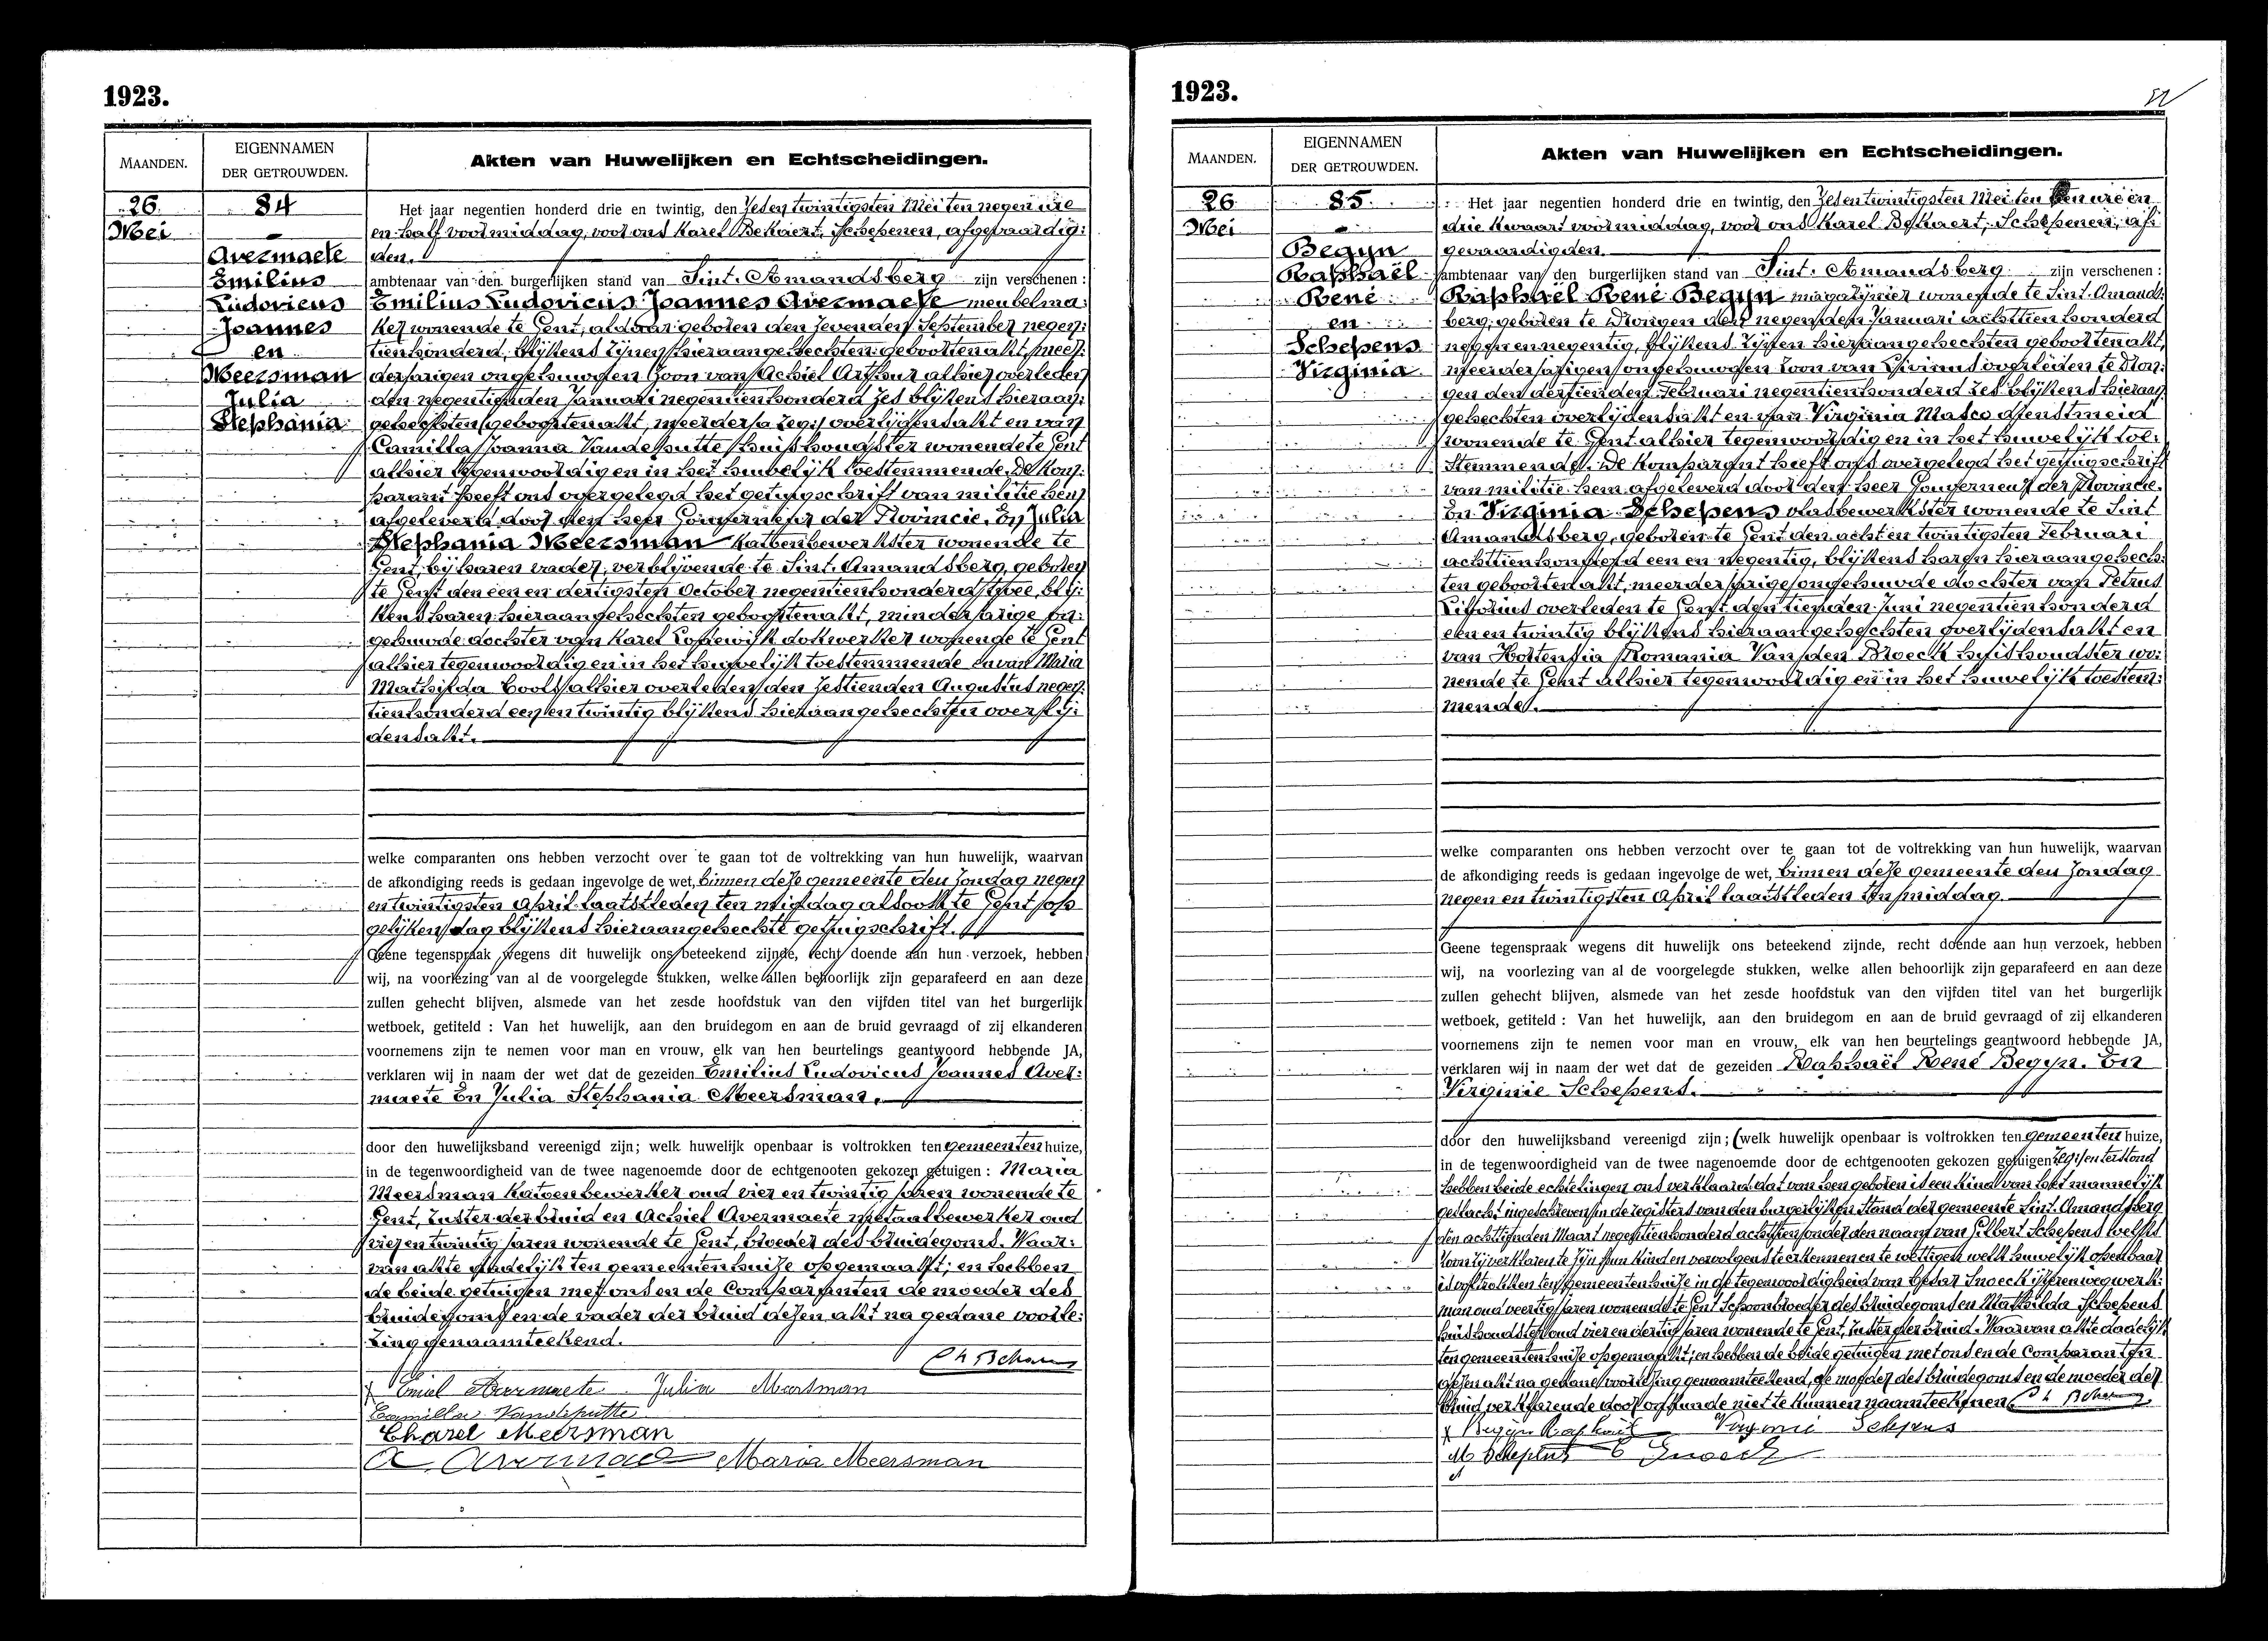 1923.
MAANDEN.
EIGENNAMEN
DER GETROUWDEN.
Akten van Huwelijken en Echtscheidingen.
26
Mei
84
Avermaete
Emilius
Ludovicus
Joannes
en
Meersman
Julia
Stephania
Het jaar negentien honderd drie en twintig, den Zesen twintigsten Mei ten negen ure
en half voormiddag, voor ons Karel Bekaert, Schepenen, afgevaardig:
den.
ambtenaar van den burgerlijken stand van Sint-Amandsberg zijn verschenen:
Emilius Ludovicus Joannes Avermaete meubelma:
ker wonende te Gent, aldaar geboren den zevenden September negen:
tienhonderd, blijkens zijnen hieraangehechten geboortenakt, meer:
derjarigen ongehuwden zoon van Achiel Arthur alhier overleden
den negentienden Januari negentienhonderd zes blijkens hieraan:
gehechten geboortenakt, meerderja zeg: overlijdensakt en van
Camilla Joanna Vandeputte huishoudster wonende te Gent
alhier tegenwoordig en in het huwelijk toestemmende. De kom:
parant heeft ons overgelegd het getuigschrift van militie hem
afgeleverd door den heer Gouverneur der Provincie. En Julia
Stephania Meersman katoenbewerkster wonende te
Gent, bij haren vader, verblijvende te Sint-Amandsberg, geboren
te Gent den een en dertigsten October negentienhonderd twee, blij:
kens haren hieraangehechten geboortenakt, minderjarige on:
gehuwde dochter van Karel Lodewijk dokwerker wonende te Gent
alhier tegenwoordig en in het huwelijk toestemmende en van Maria
Mathilda Cools alhier overleden den zestienden Augustus negen:
tienhonderd een en twintig blijkens hieraangehechten overlij:
densakt.
welke comparanten ons hebben verzocht over te gaan tot de voltrekking van hun huwelijk, waarvan
de afkondiging reeds is gedaan ingevolge de wet, binnen deze gemeente den Zondag negen
en twintigsten April laatstleden ten middag alsook te Gent op
gelijken dag blijkens hieraangehechte getuigschrift.
Geene tegenspraak wegens dit huwelijk ons beteekend zijnde, recht doende aan hun verzoek, hebben
wij, na voorlezing van al de voorgelegde stukken, welke allen behoorlijk zijn geparafeerd en aan deze
zullen gehecht blijven, alsmede van het zesde hoofdstuk van den vijfden titel van het burgerlijk
wetboek, getiteld : Van het huwelijk, aan den bruidegom en aan de bruid gevraagd of zij elkanderen
voornemens zijn te nemen voor man en vrouw, elk van hen beurtelings geantwoord hebbende JA,
verklaren wij in naam der wet dat de gezeiden Emilius Ludovicus Joannes Aver:
maete En Julia Stephania Meersman.
door den huwelijksband vereenigd zijn; welk huwelijk openbaar is voltrokken ten gemeenten huize,
in de tegenwoordigheid van de twee nagenoemde door de echtgenooten gekozen getuigen : Maria
Meersman katoenbewerker oud vier en twintig jaren wonende te
Gent, zuster der bruid en Achiel Avermaete metaalbewerker oud
vier en twintig jaren wonende te Gent, broeder des bruidegoms. Waar:
van akte dadelijk ten gemeentenhuize opgemaakt; en hebben
de beide getuigen met ons en de Comparanten de moeder des
bruidegoms en de vader der bruid dezen akt na gedane voorle:
zing genaamteekend.
Emiel Avermaete Julia Meersman
Camilla Vandeputte
Charel Meersman
A. Avermaete Maria Meersman
1923.
MAANDEN.
EIGENNAMEN
DER GETROUWDEN.
Akten van Huwelijken en Echtscheidingen.
26
Mei
85
Begyn
Raphaël
René
en
Schepens
Virginia
Het jaar negentien honderd drie en twintig, den Zesen twintigsten Mei ten tien ure en
drie kwaart voormiddag, voor ons Karel Bekaert, Schepenen, af:
gevaardigden.
ambtenaar van den burgerlijken stand van Sint-Amandsberg zijn verschenen :
Raphaël René Begyn magazijnier wonende te Sint-Amands:
berg, geboren te Drongen den negenden Januari achttienhonderd
negen en negentig, blijkens zijnen hieraangehechten geboortenakt,
meerderjarigen ongehuwden zoon van Livinus overleden te Dron:
gen den dertienden Februari negentienhonderd zes blijkens hieraan:
gehechten overlijdensakt en van Virginia Masco dienstmeid
wonende te Gent alhier tegenwoordig en in het huwelijk toe:
stemmende. De komparant heeft ons overgelegd het getuigschrift
van militie hem afgeleverd door den heer Gouverneur der Provincie.
En Virginia Schepens vlasbewerkster wonende te Sint
Amandsberg, geboren te Gent den acht en twintigsten Februari
achttienhonderd een en negentig, blijkens haren hieraangehech:
ten geboortenakt, meerderjarige ongehuwde dochter van Petrus
overleden te Gent den tienden Juni negentienhonderd
een en twintig blijkens hieraangehechten overlijdensakt en
van Hortensia Romania Van den Broeck huishoudster wo:
nende te Gent alhier tegenwoordig en in het huwelijk toestem:
mende.
welke comparanten ons hebben verzocht over te gaan tot de voltrekking van hun huwelijk, waarvan
de afkondiging reeds is gedaan ingevolge de wet, binnen deze gemeente den Zondag
negen en twintigsten April laatstleden ten middag.
Geene tegenspraak wegens dit huwelijk ons beteekend zijnde, recht doende aan hun verzoek, hebben
wij, na voorlezing van al de voorgelegde stukken, welke allen behoorlijk zijn geparafeerd en aan deze
zullen gehecht blijven, alsmede van het zesde hoofdstuk van den vijfden titel van het burgerlijk
wetboek, getiteld : Van het huwelijk, aan den bruidegom en aan de bruid gevraagd of zij elkanderen
voornemens zijn te nemen voor man en vrouw, elk van hen beurtelings geantwoord hebbende JA,
verklaren wij in naam der wet dat de gezeiden Raphaël René Begyn. En
Virginie Schepens.
door den huwelijksband vereenigd zijn; (welk huwelijk openbaar is voltrokken ten gemeenten huize,
in de tegenwoordigheid van de twee nagenoemde door de echtgenooten gekozen getuigen zeg: en terstond
hebben beide echtelingen ons verklaard dat van hen geboren is een kind van het mannelijk
geslacht ingeschreven in de registers van den burgerlijken stand der gemeente Sint-Amandsberg
den achttienden Maart negentienhonderd achttien onder den naam van Gilbert Schepens welke
zoon zij verklaren te zijn hun kind en vervolgens te erkennen en te wettigen welk huwelijk openbaar
is voltrokken ten gemeentenhuize in de tegenwoordigheid van Cesar Snoeck ijzerenwegwerk:
man oud veertig jaren wonende te Gent Schoonbroeder des bruidegoms en Mathilda Schepens
huishoudster oud vier en dertig jaren wonende te Gent, zuster der bruid. Waarvan akte dadelijk
ten gemeentenhuize opgemaakt; en hebben de beide getuigen met ons en de Comparanten
dezen akt na gedane voorlezing genaamteekend, de moeder des bruidegoms en de moeder der
bruid verklarende door onkunde niet te kunnen naamteekenen.
Begyn Raphaël Virginie Schepens
M Schepens C Snoeck